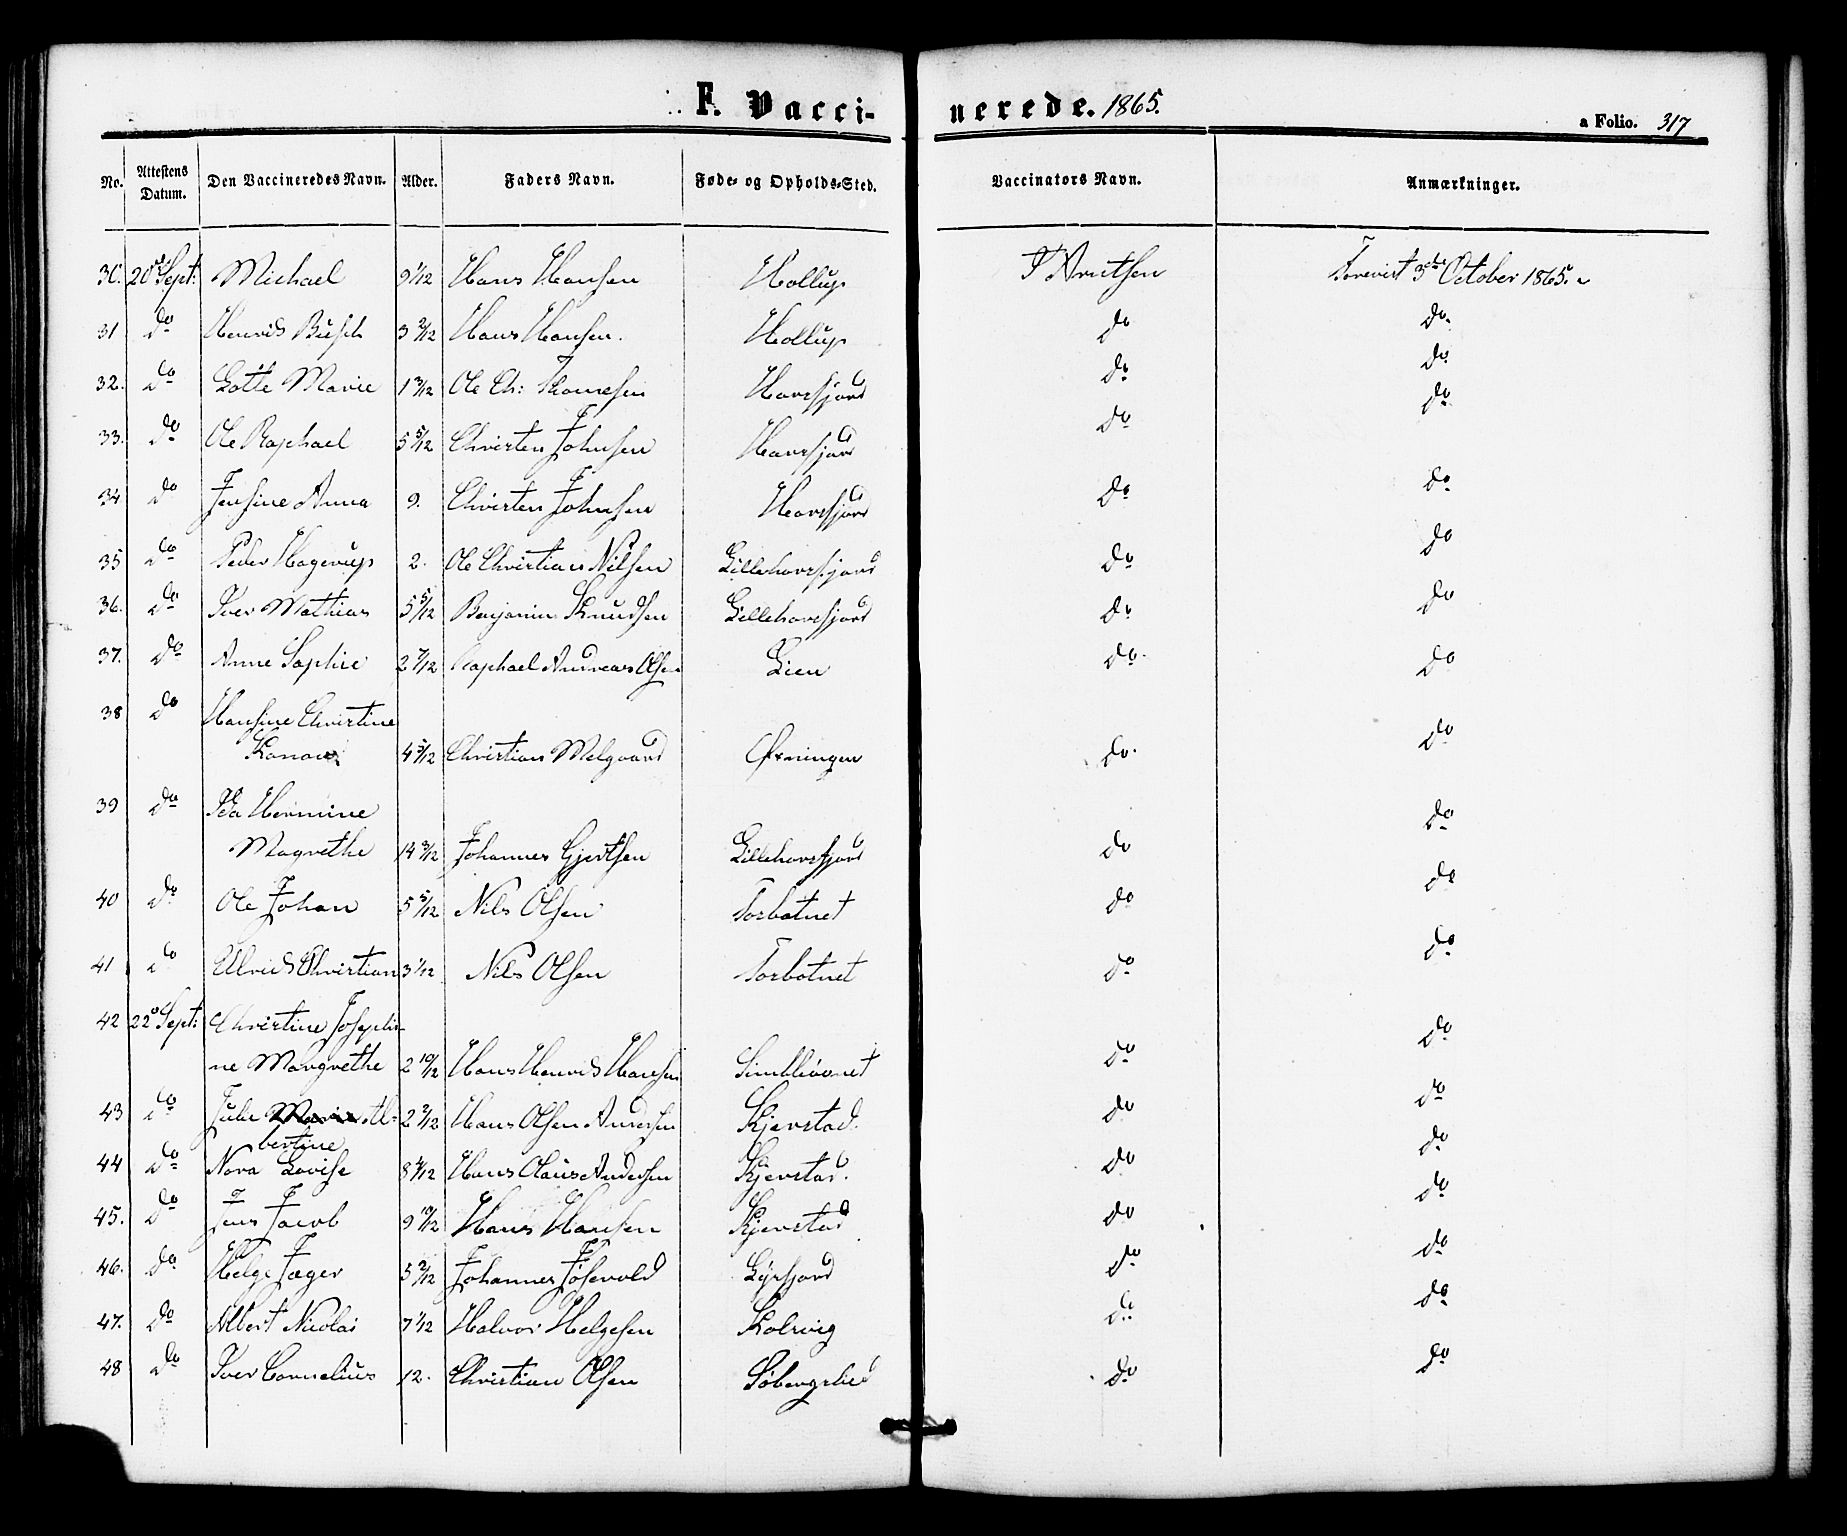 F. Vacci-
nerede. 1865.
a Folio. 317
No. Attestens Datum. Den Vaccineredes Navn. Alder. Faders Navn. Føde- og Opholds-Sted. Vaccinators Navn. Anmærkninger.
30. 20de Sept: Michael 9 1/12 Hans Hansen Hollup Forevist 3die October 1865.
31 do Henrik Busch 3 2/12 Hans Hansen. Hollup do do.
32. do Lotte Marie 1 3/12 Ole Ch: Thomesen Havrfjord do do
33. do Ole Raphael 5 5/12 Christen Johnsen Havrfjord do do
34 do Jensine Anna 9. Christen Johnsen Havrfjord do do
35 do Peder Hagerup 2. Ole Christian Nilsen Lillehavrfjord do do
36. do Iver Mathias 5 5/12 Benjamin Knudsen Lillehavrfjord do do
37. do Anne Sophie 2 7/12 Raphael Andreas Olsen Lien do. do
38 do Hansine Christine
Konow 4 5/12 Christian Melgaard Øxningen do. do
39 do Ida Hermine
Magrethe 14 3/12 Johannes Gjertsen Lillehavrfjord do do
40 do Ole Johan 5 5/12 Nils Olsen Torbotnet do do
41 do Ulrik Christian 3 1/12 Nils Olsen Torbotnet do do
42 22de Sept: Christine Josephi-
ne Margrethe 2 10/12 Hans Henrik Hansen do do
43 do Julie Marie Al-
bertine 2 2/12 Hans Olsen Andersen Kjerstad. do do
44 do Nora Lovise 8 4/12 Hans Olaus Andersen Kjerstad. do do
45. do Jens Jacob 9 10/12 Hans Hansen Kjerstad do do
46. do Helge Jæger 5 2/12 Johannes Jøsevold Lyrfjord do do
47. do Albert Nicolai 7 1/12 Halvor Helgesen Kolsvig do do
48 do Iver Cornelius 12. Christian Olsen do do